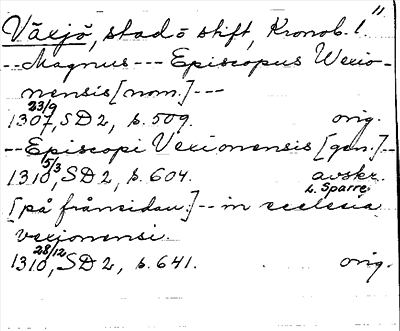 11.
Växjö, stad o stift, Kronob. l.
--Magnus --- Episcopus Wexio-
nensis [nom.] ---
23/9
1307, SD 2, s. 509. orig.
--Episcopi Vexionensis [gen.]--
5/3
1310, SD 2, s. 604. avskr.
h. Sparre
[på frånsidan.]-- in ecclesia
vexjonensi.
28/12
1310, SD 2, s. 641. orig.